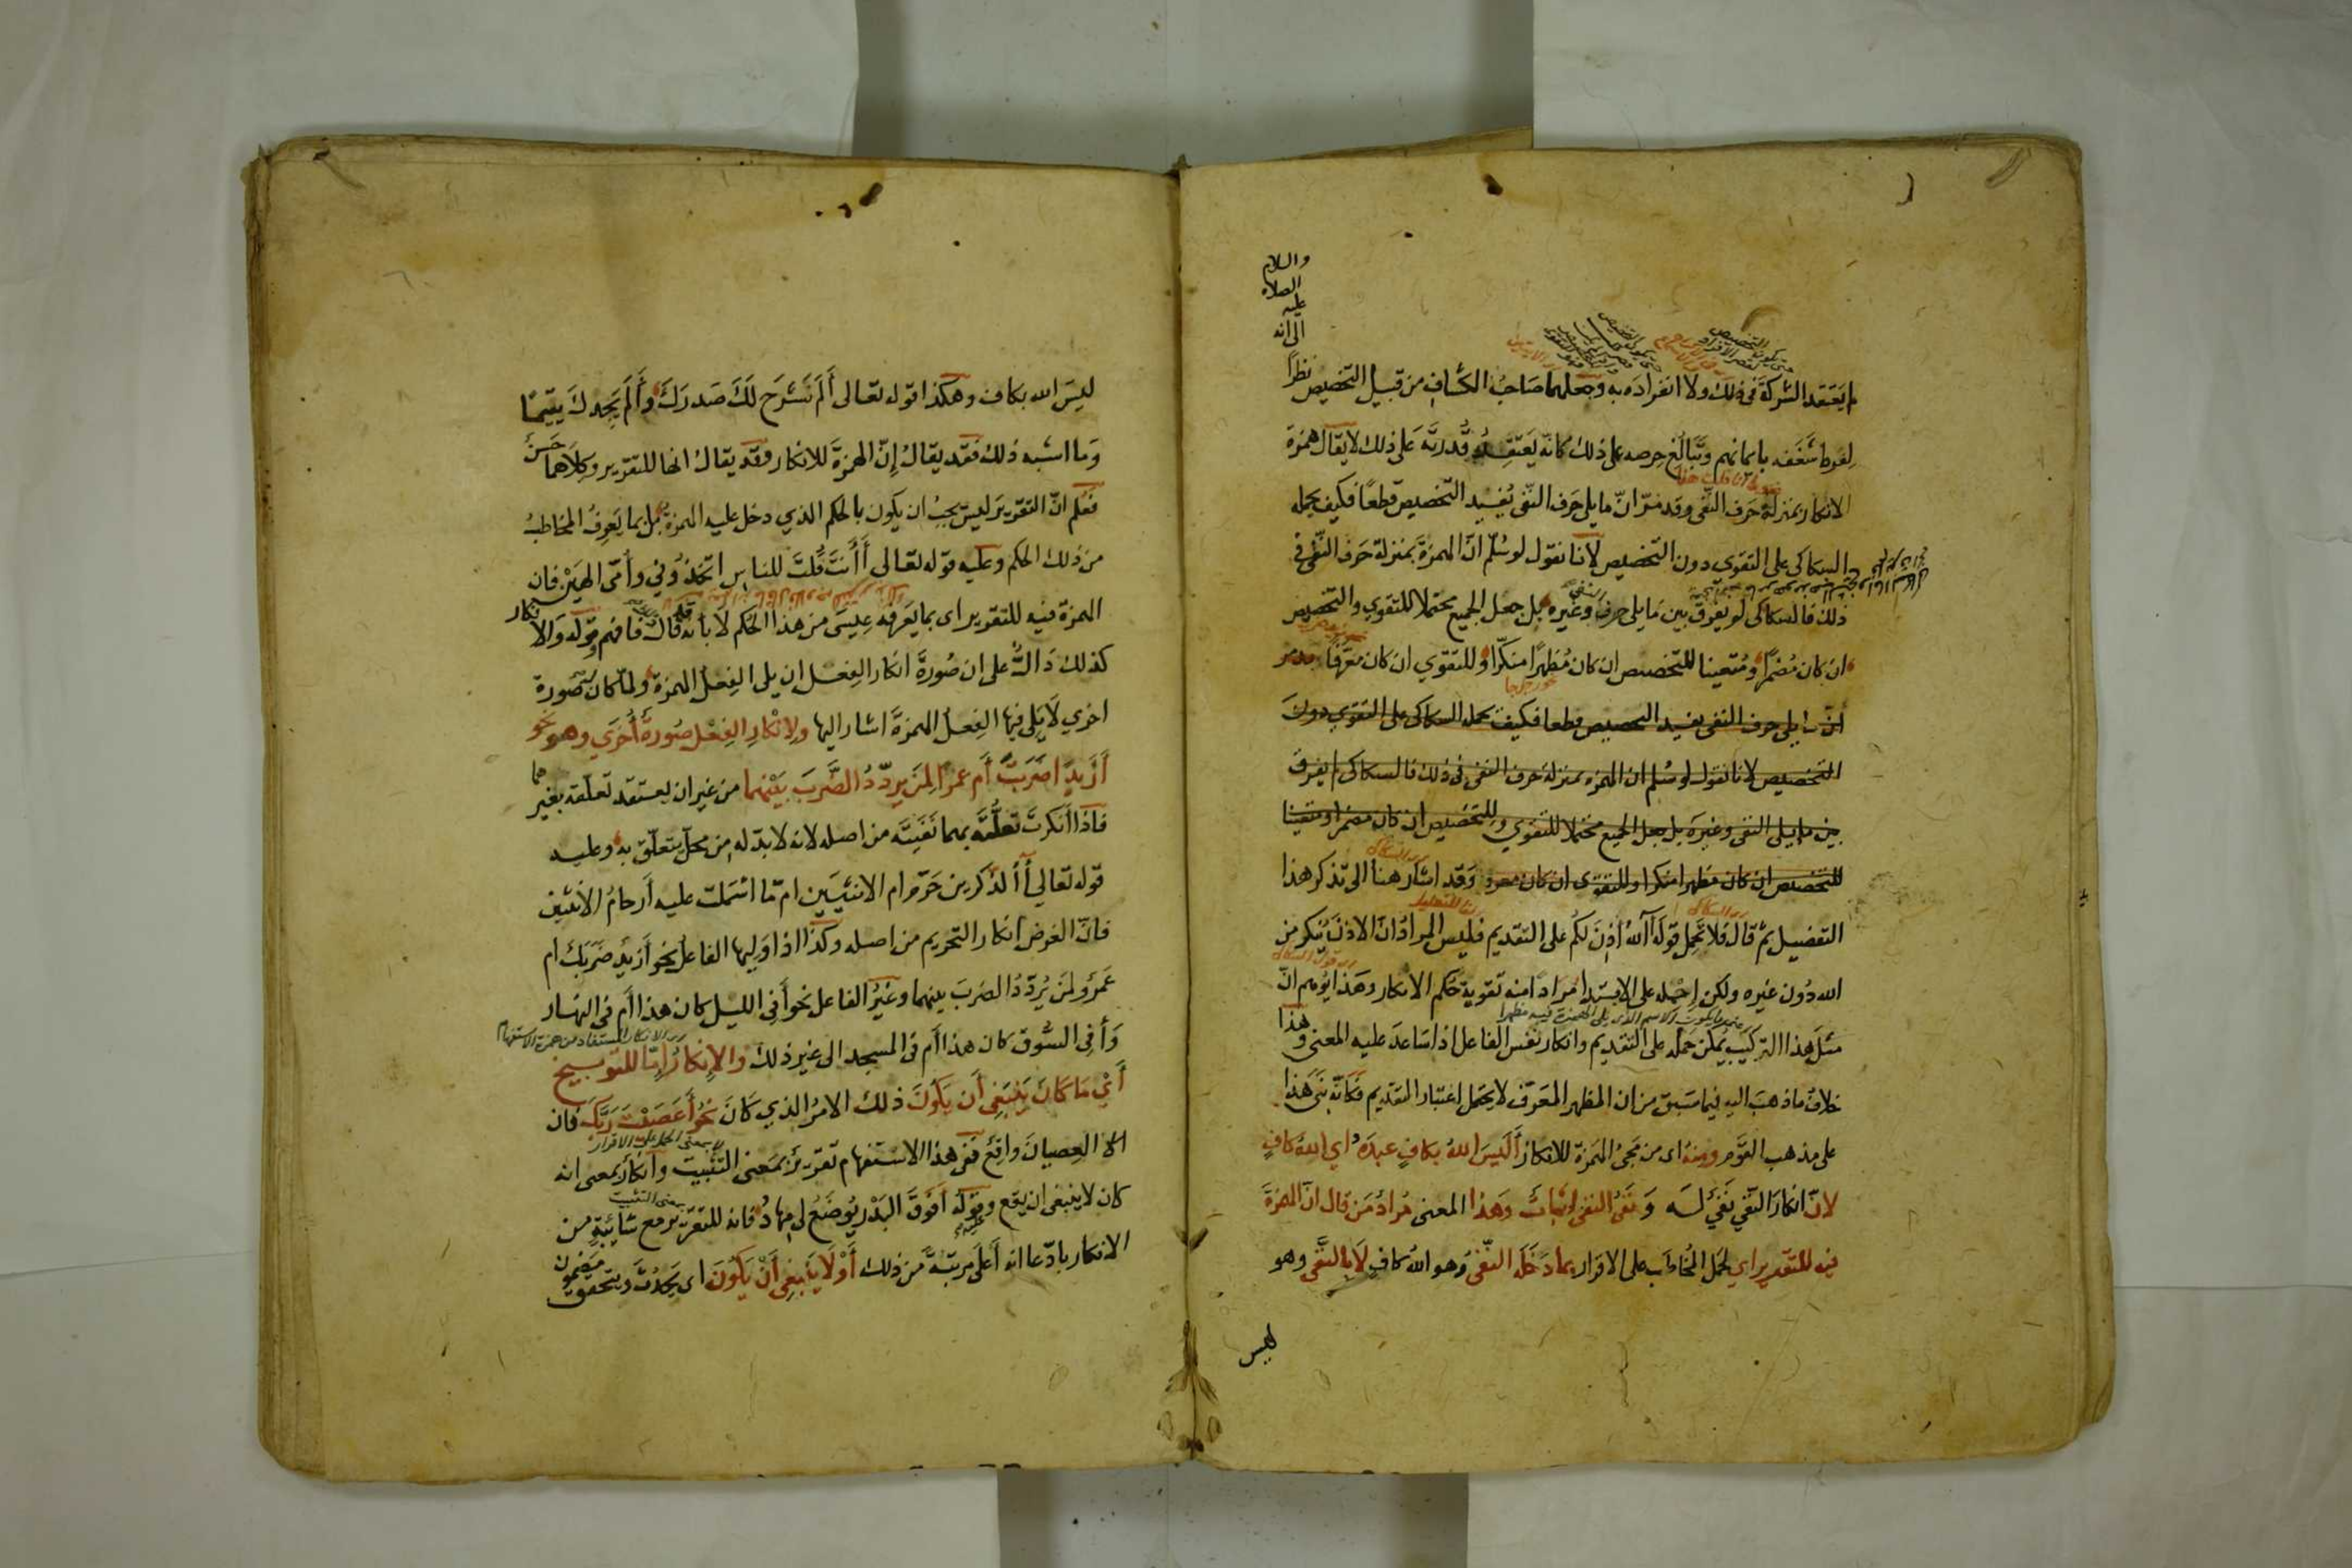 والسلام
الصلاة
عليه
الى انه
لم يعتقد الشركة فى ذلك ولا انفراده به وجعلهما صاحب الكشاف من قبيل التخصيص نظرًا
لفرط شغفه بايمانهم وتبالغ حرصه على ذلك كانه يعتقد قدرته على ذلك لا يقال همزة
الانكار بمنزلة حرف النفى وقد مرّ انّ ما يلى حرف النفى يفيد التخصيص قطعًا فكيف يحمله
السكاكى على التقوى دون التخصيص لانا نقول لو سُلّم انّ الهمزة بمنزلة حرف النفى فى
ذلك فالسكاكى لم يفرق بين ما يلى حرف النفى وغيره بل جعل الجميع محتملا للتقوي والتخصيص
ان كان مُضمرًا ومُتعينا للتخصيص ان كان مُظهرًا منكرًا وللتقوي ان كان معرّفا
انّ ما يلى حرف النفى يفيد التخصيص قطعا فكيف يحمله السكاكى على التقوي دون
التخصيص لانا نقول لو سُلم ان الهمزة بمنزلة حرف النفى فى ذلك فالسكاكى لم يفرق
بين ما يلى النفى وغيره بل جعل الجميع محتملا للتقوي وللتخصيص ان كان مضمرا ومتعينا
للتخصيص ان كان مظهرا منكرا وللتقوى ان كان معرفا وقد اشار هنا الى تذكر هذا
التفضيل ثم قال فلا تحمل قوله آلله اذِنَ لكم على التقديم فليس المراد انّ الاذن يُنكر من
الله دُون غيره ولكن احمله على الابتدا مُرادًا منه تقوية حكم الانكار وهذا يُوهم انّ
مثل هذا التركيب يُمكن حمله على التقديم وانكار نفس الفاعل اذا ساعد عليه المعنى وهذا
خلاف ما ذهب اليه فيما سبق من ان المظهر المعرّف لا يحتمل اعتبار التقديم فكانه بنى هذا
على مذهب القوم ومنهُ اى من مجئ الهمزة للانكار أَلَيسَ اللهُ بكافٍ عبدَه اي اللهُ كافٍ
لانّ انكار النفي نفيٌ له وَ نفيُ النفي اثباتٌ وَهذا المعنى مُراد مَن قال انّ الهمزة
فيه للتقرير اي لحمل المُخاطب على الاقرار بما دَخَله النّفيُ وهو الله كافٍ لا بالنفي وهو
ليس
ليسَ الله بكاف وهكذا قوله تعالى أَلَم نَشْرَح لَكَ صَدرَكَ وأَلَم يَجِدكَ يتيمًا
وما اشبه ذلك فقد يقالُ إنّ الهمزة للانكار وقد يقالُ انها للتقرير وكلاهما حَسن
فعُلم انّ التقرير ليس يجبُ ان يكون بالحكم الذي دخل عليه الهمزة بل بما يَعرِفُ المخاطبُ
من ذلك الحكم وعليه قوله تعالى أَأَنتَ قُلتَ للناسِ اتّخذُوني وأُمّىَ الهَيْن فان
الهمزة فيه للتقرير اى بما يَعرفه عِيسَى من هذا الحُكم لا بأنه قد قال فافهم وقوله والانكار
كذلك دَالٌّ على ان صُورة انكار الفعل ان يلى الفِعلُ الهمزة ولمّا كان له صُورة
اخرى لا يَلي فيها الفِعلُ الهمزةَ اشار اليها ولِانْكارِ الفِعْلِ صُورةٌ أُخرَى وهو نحو
أَزَيدًا ضَرَبتَ أَم عمرًا لِمَن يردّدُ الضَّربَ بَيْنَهما من غير ان يعتقد تعلّقه بغيرهما
فاذا انكرتَ تعلُّقه بهما نَفَيتَه من اصله لانه لا بدّ له من محلّ يتعلّق به وعليه
قوله تعالى أَالذكرين حَرّم ام الانثيين امّا اشتملت عليه أرحامُ الأنثيين
فانّ الغرض انكار التحريم من اصله وكذا اذا وَليها الفاعلُ نحو أَزيدٌ ضربَك ام
عَمرٌو لمَن يُردّدُ الضربَ بينهما وغيرُ الفاعل نحو أَفِي الليل كان هذا أم في النهار
وأَفِى السُّوق كان هذا أَم فى المسجد الى غير ذلك والإنكارُ إمّا للتوبيخ
أَيْ مَا كَانَ يَنْبَغِى أَن يكُونَ ذلك الامرُ الذي كَانَ نحو أَعَصَيْتَ رَبَّكَ فان
العِصيانَ واقعٌ ففى هذا الاستفهام تقريرٌ بمعنى التثبيت وانكارٌ بمعنى انه
كان لا ينبغى ان يقع وقوله أَفَوْقَ البَدْرِ يُوضَعُ لي مِهادُ فانه للتقرير مع شائبةٍ من
الانكار بادّعا انه أعلَى مرتبةً من ذلك أَوْ لا يَنْبَغِي أَنْ يَكُونَ اى يَحدُثَ ويتحقق مضمون